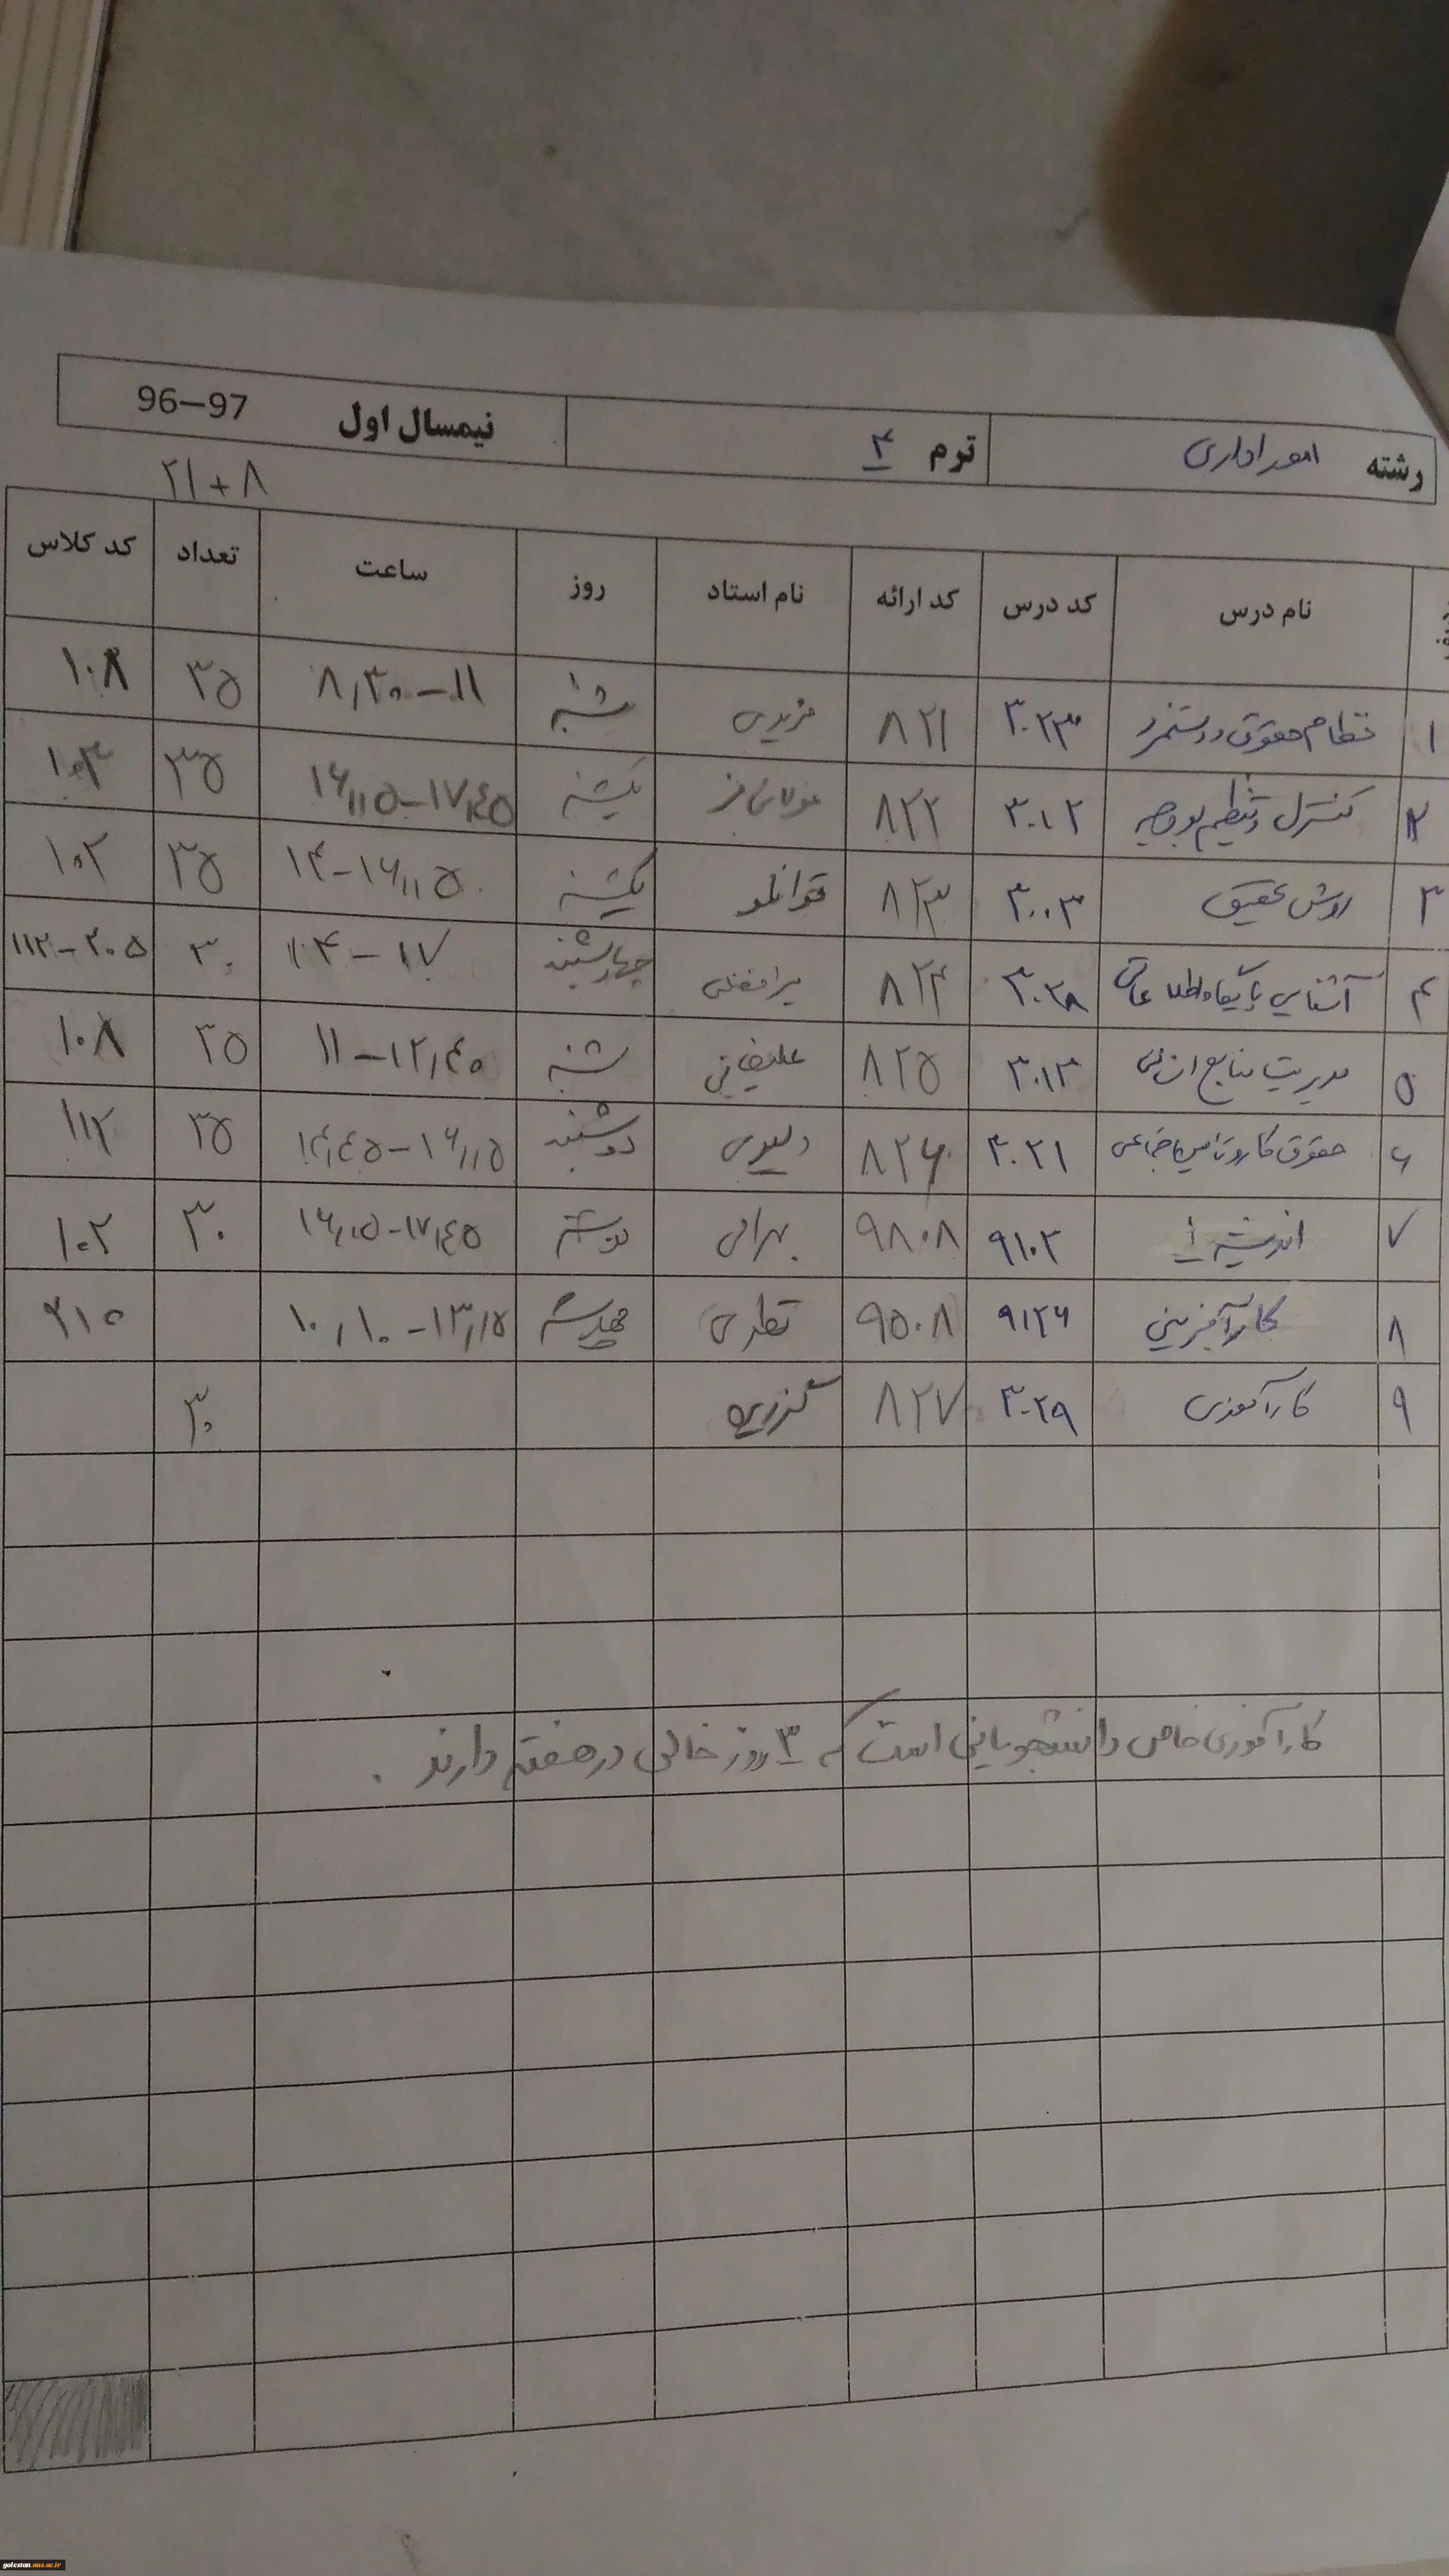 رشته امور اداری ترم ۴ نیمسال اول 96-97
۲۱+۸
نام درس کد درس کد ارائه نام استاد روز ساعت تعداد کد کلاس
۱ نظام حقوق و دستمزد ۳۰۲۳ ۸۲۱ شنبه ۸,۳۰-۱۱ ۳۵ ۱۰۸
۲ کنترل و تنظیم بودجه ۳۰۱۲ ۸۲۲ یکشنبه ۱۶,۱۵-۱۷,۴۵ ۳۵ ۱۰۳
۳ روش تحقیق ۳۰۰۳ ۸۲۳ قوانلو یکشنبه ۱۴-۱۶,۱۵ ۳۵ ۱۰۲
۴ آشنایی با پایگاه اطلاعاتی ۳۰۲۸ ۸۲۴ میرافضلی چهارشنبه ۱۴-۱۷ ۳۰ ۲۰۵-۱۱۲
۵ مدیریت منابع انسانی ۳۰۱۳ ۸۲۵ علیخانی شنبه ۱۱-۱۲,۴۵ ۳۵ ۱۰۸
۶ حقوق کار و تامین اجتماعی ۳۰۲۱ ۸۲۶ دوشنبه ۱۴,۴۵-۱۶,۱۵ ۳۵ ۱۱۲
۷ اندیشه ۱ ۹۱۰۲ ۹۸۰۸ دوشنبه ۱۶,۱۵-۱۷,۴۵ ۳۰ ۱۰۲
۸ کارآفرینی ۹۱۲۶ ۹۵۰۸ چهارشنبه ۱۰,۱۰-۱۳,۱۵ ۲۱۵
۹ کارآموزی ۳۰۲۹ ۸۲۷ ۳۰
کارآموزی خاص دانشجویانی است که ۳ روز خالی در هفته دارند.
golestan.uas.ac.ir